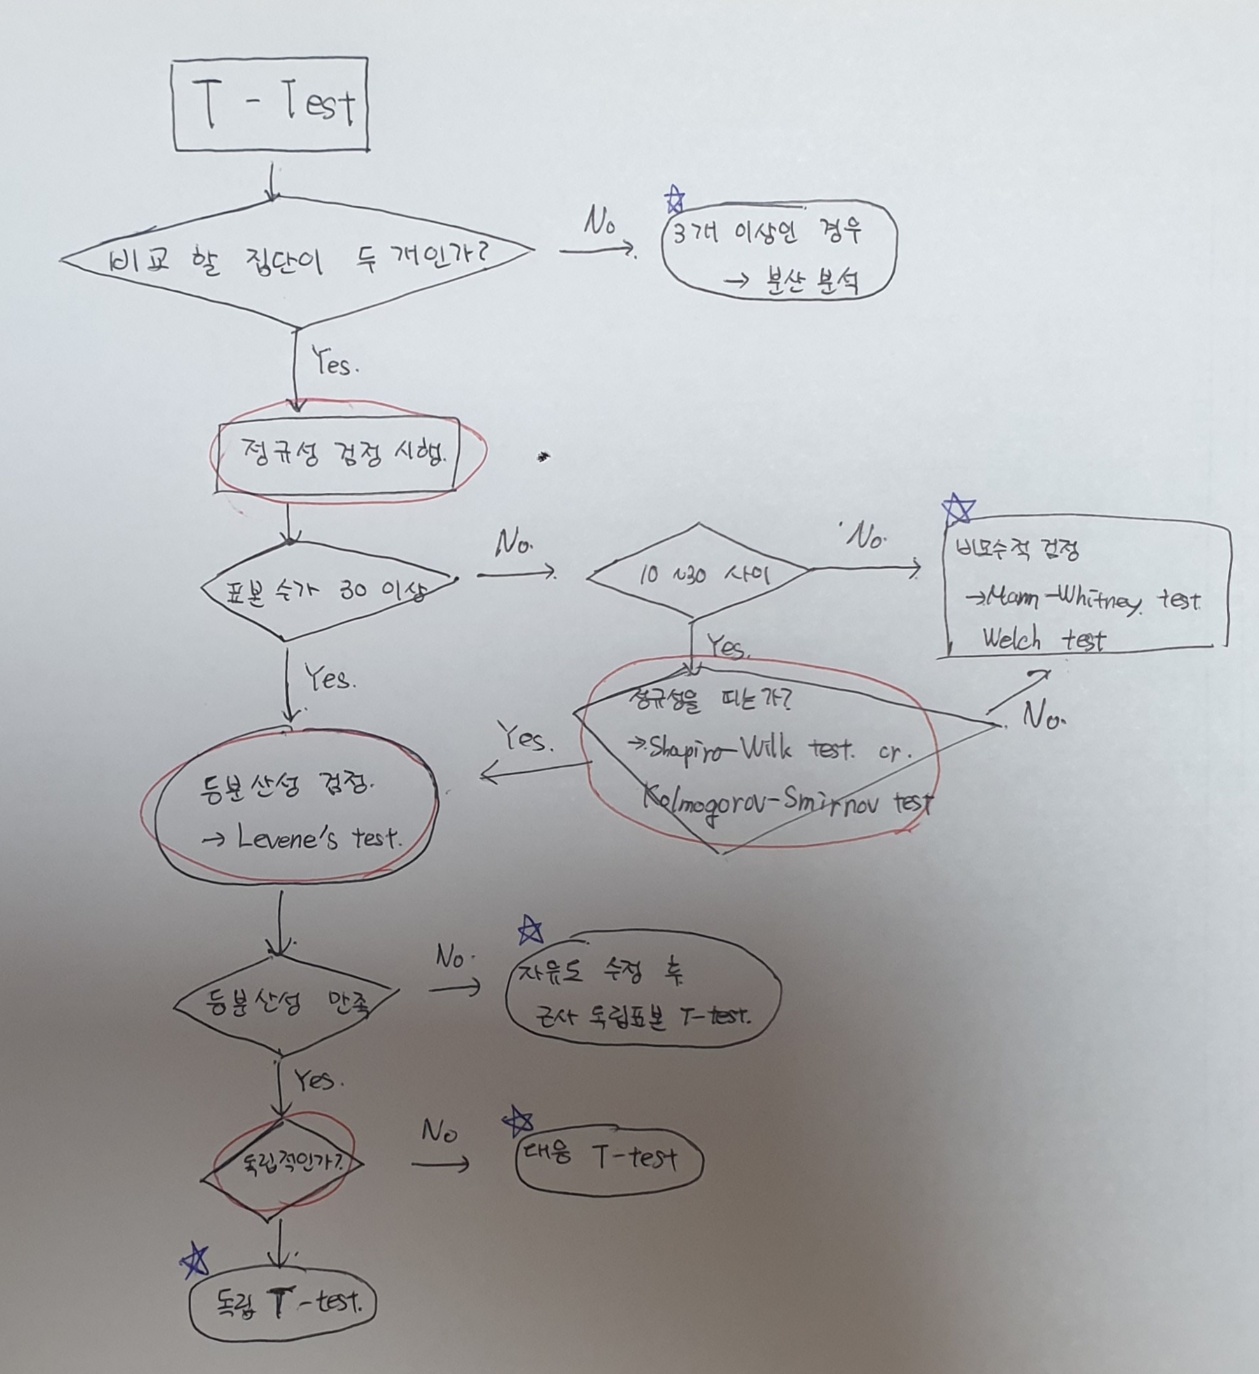 T - Test
비교 할 집단이 두 개인가?
No
3개 이상인 경우
→ 분산 분석
Yes.
정규성 검정 시행.
표본 수가 30 이상
No.
10 ~30 사이
No.
비모수적 검정
→Mann-Whitney test
Welch test
Yes.
Yes.
정규성을 띠는가?
→Shapiro-Wilk test. or.
Kolmogorov-Smirnov test
No.
Yes.
등분산성 검정.
→ Levene's test.
등분산성 만족
No.
자유도 수정 후
근사 독립표본 T-test.
Yes.
독립적인가?
No
대응 T-test
독립 T-test.